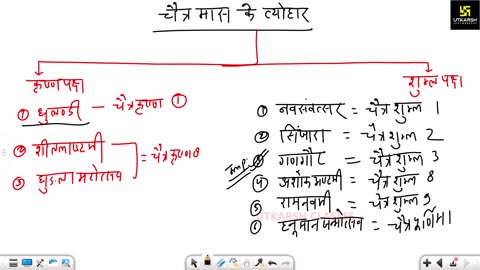 चैत्र मास के त्योहार
UTKARSH
कृष्ण पक्ष
① धुलण्डी – चैत्र कृष्ण ①
② शीतलाष्टमी
③ घुड़ला महोत्सव
= चैत्र कृष्ण 8
शुक्ल पक्ष
① नवसंवत्सर = चैत्र शुक्ल 1
② सिंधारा = चैत्र शुक्ल 2
Imp. ③ गणगौर = चैत्र शुक्ल 3
④ अशोकाष्टमी = चैत्र शुक्ल 8
⑤ रामनवमी = चैत्र शुक्ल 9
⑥ हनुमान जन्मोत्सव = चैत्र पूर्णिमा
UTKARSH CLASSES